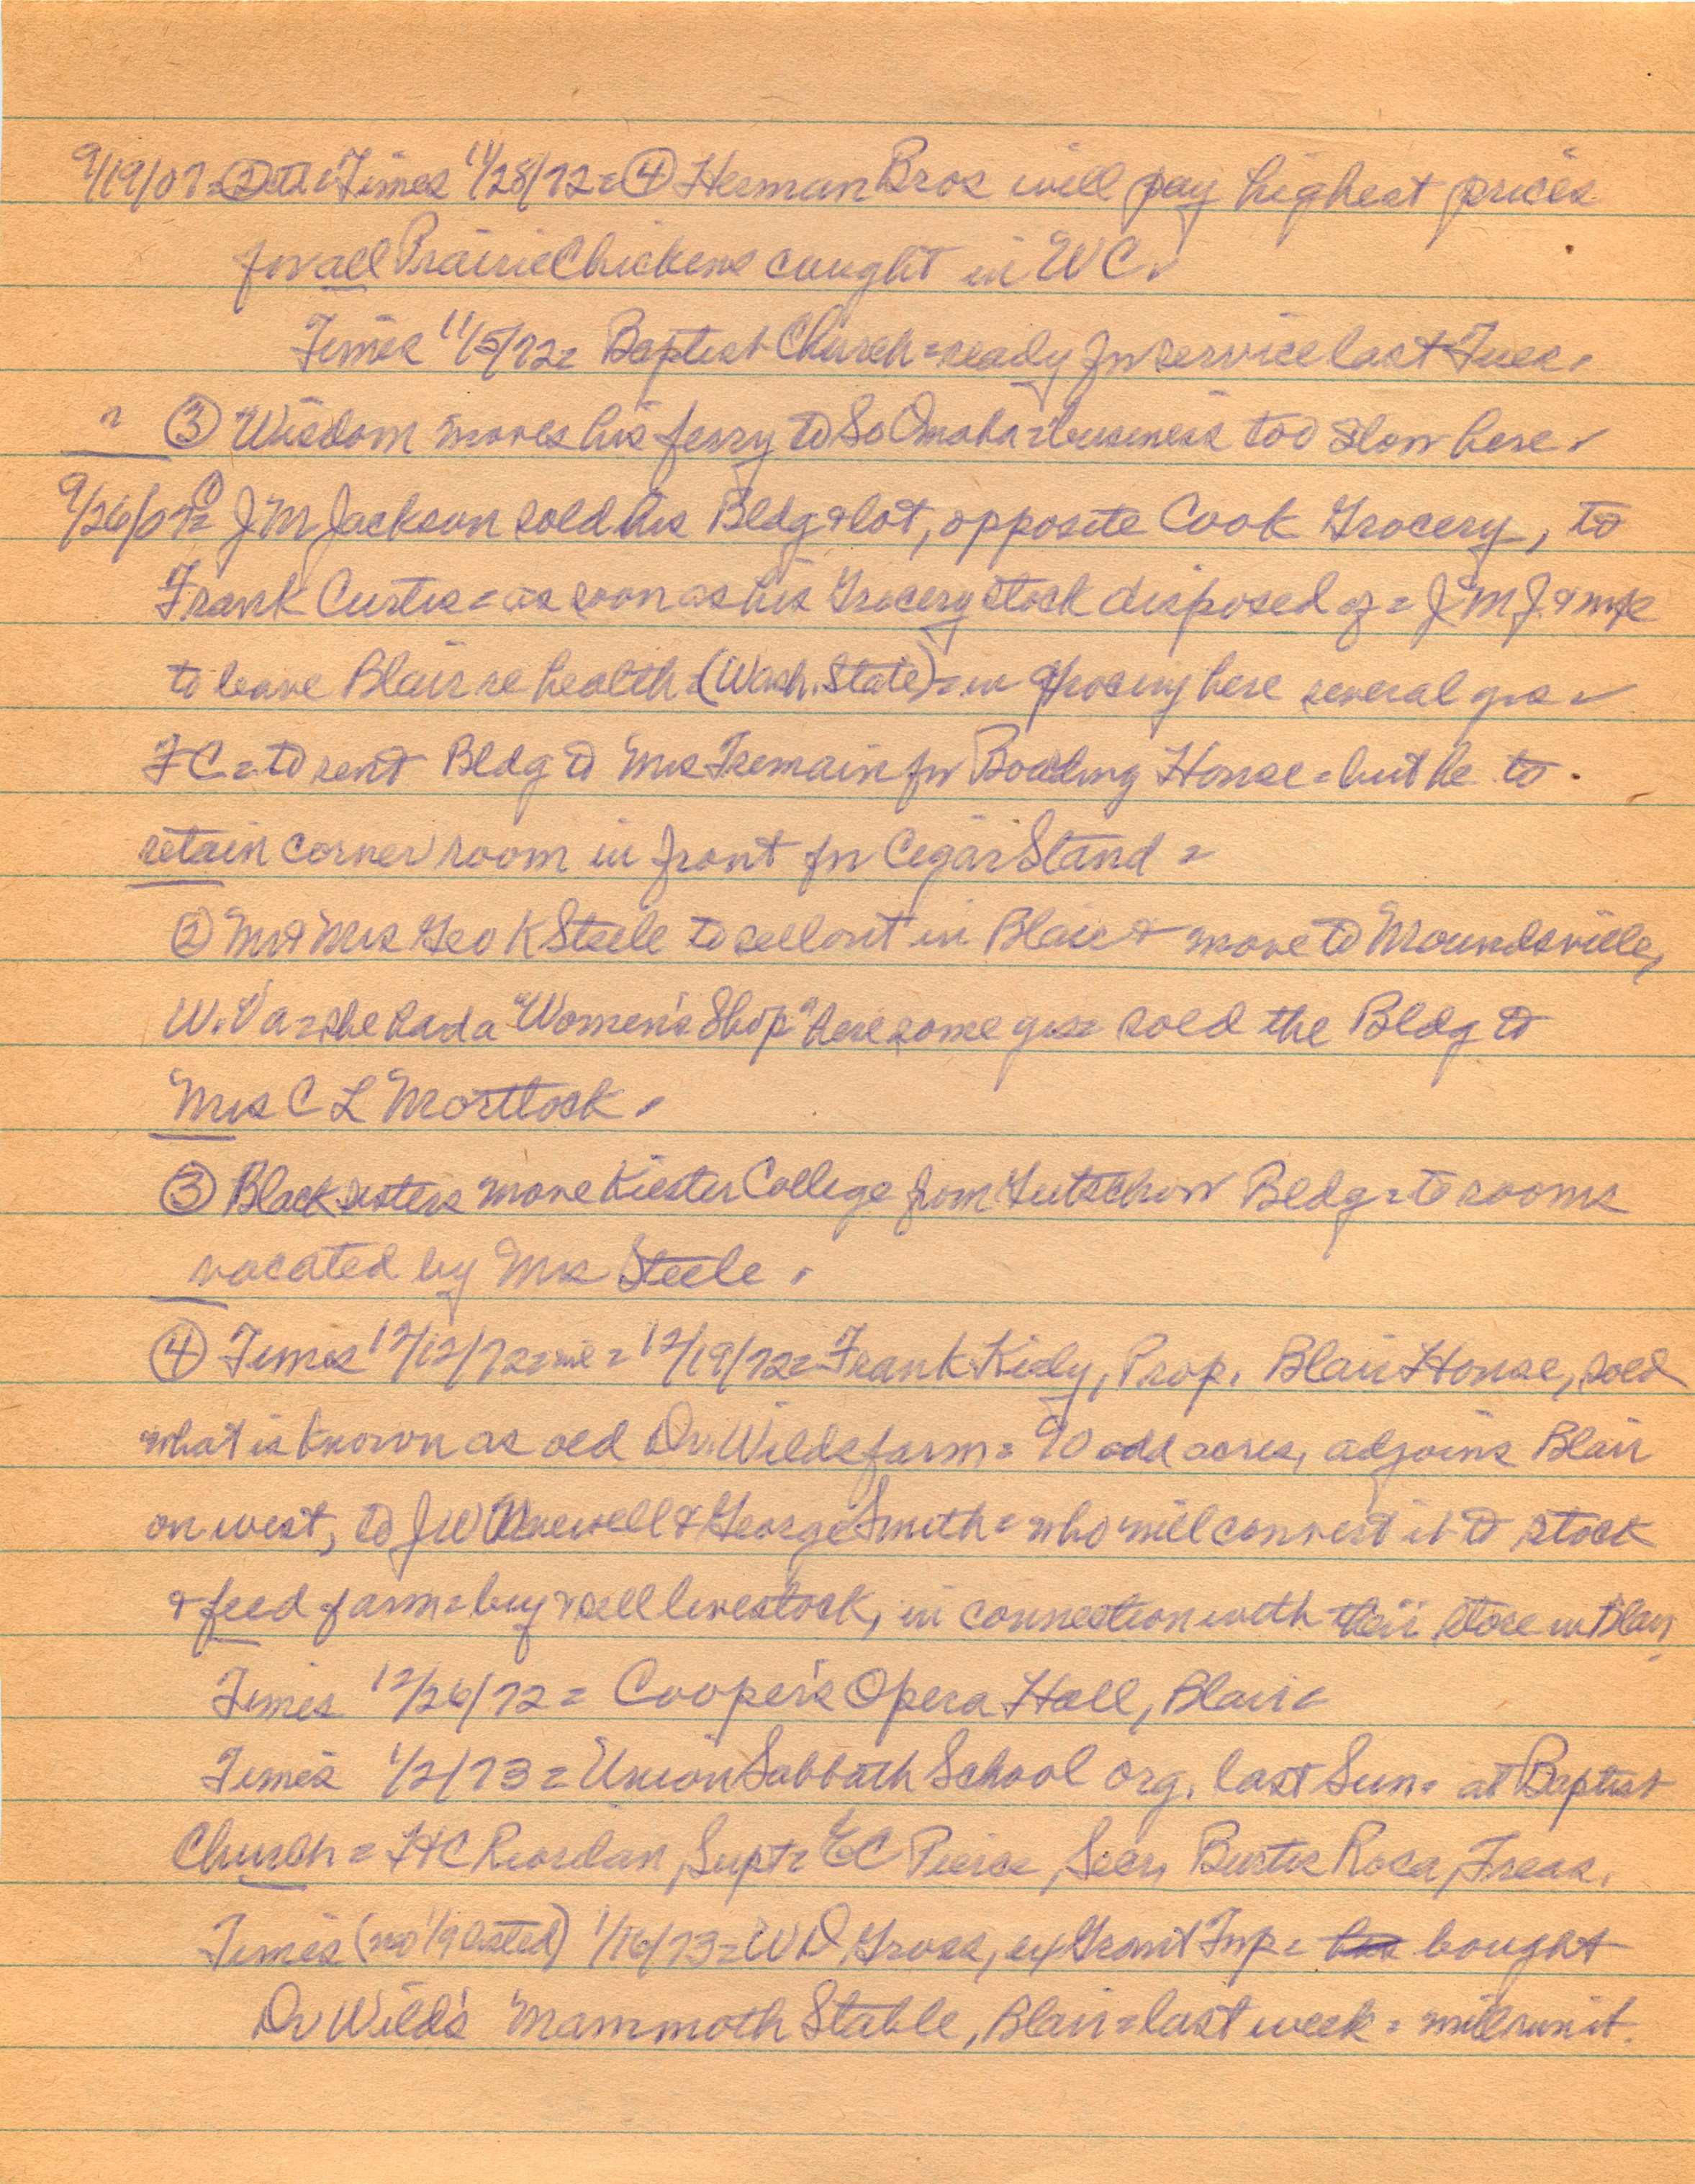 9/19/07 = Times 11/28/72 = ④ Herman Bros will pay highest prices
for all Prairie Chickens caught in WC.
Times 11/5/72 = Baptist Church = ready for service last Tues.
" ③ Wisdom moves his ferry to So Omaha = business too slow here.
9/26/07 = ① J M Jackson sold his Bldg & lot, opposite Cook Grocery, to
Frank Curtis = as soon as his Grocery stock disposed of = J M J. & wife
to leave Blair re health = (Wash. State) = in Grocery here several yrs =
F C = to rent Bldg to Mrs Tremain for Boarding House = but he to
retain corner room in front for Cigar Stand =
② Mr & Mrs Geo K Steele to sell out in Blair & move to Moundsville,
W. Va = she had a "Women's Shop" here some yrs = sold the Bldg to
Mrs C L Mortlock.
③ Black sisters move Kiester College from Lutschow Bldg = to rooms
vacated by Mrs Steele.
④ Times 12/12/72 = = 12/19/72 = Frank Kidy, Prop. Blair House, sold
what is known as old Dr. Wilds farm = 90 odd acres, adjoins Blair
on west, to J W Newell & George Smith = who will convert it to stock
& feed farm = buy & sell livestock, in connection with their store in Blair.
Times 12/26/72 = Cooper's Opera Hall, Blair =
Times 1/2/73 = Union Sabbath School org. last Sun = at Baptist
Church = H C Riordan, Supt = E C Pierce, Secr, Burtis Rosa, Treas.
Times (no 1/9 listed) 1/16/73 = W D. Gross, ex Grant Twp = has bought
Dr Wild's Mammoth Stable, Blair = last week = will run it.